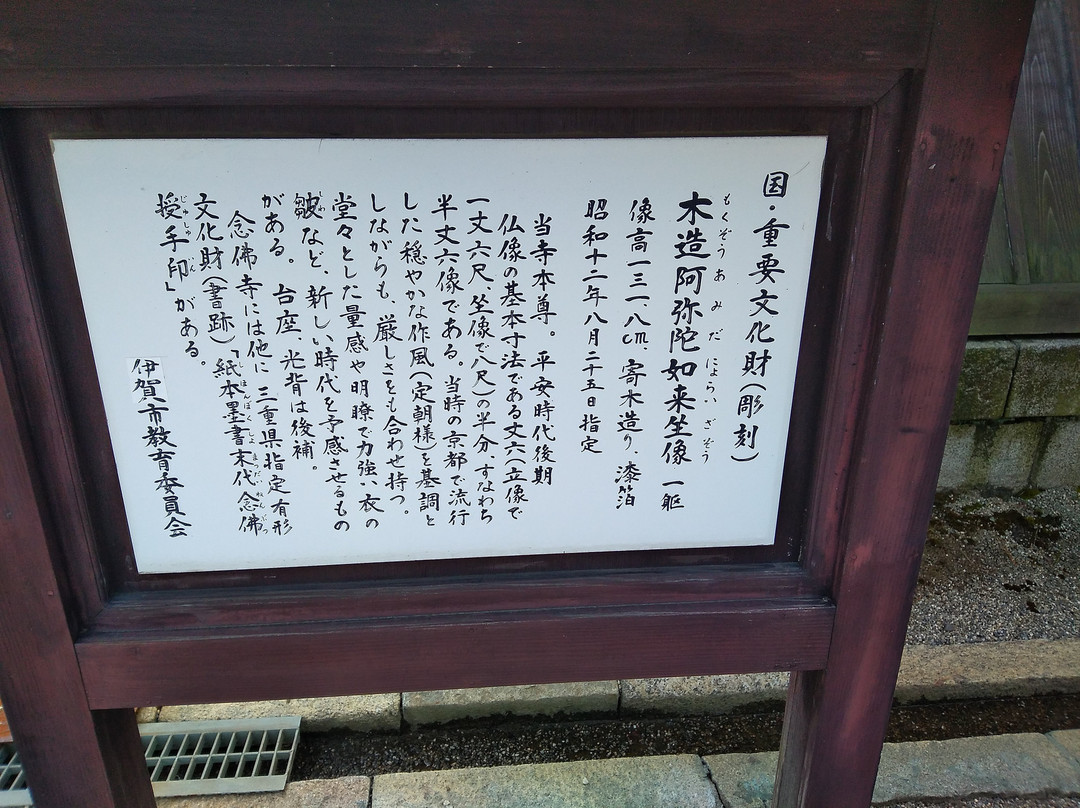 国・重要文化財(彫刻)
木造阿弥陀如来坐像 一軀
もくぞうあみだにょらいざぞう
像高一三一、八cm、寄木造り、漆箔
昭和十二年八月二十五日指定
当寺本尊。平安時代後期
仏像の基本寸法である丈六(立像で
一丈六尺、坐像で八尺)の半分、すなわち
半丈六像である。当時の京都で流行
した穏やかな作風(定朝様)を基調と
しながらも、厳しさをも合わせ持つ。
堂々とした量感や明瞭で力強い衣の
皺など、新しい時代を予感させるもの
しわ
がある。台座、光背は後補。
念佛寺には他に三重県指定有形
文化財(書跡)「紙本墨書末代念佛
しほんぼくしょまつだいねんぶつ
授手印」がある。
じゅしゅいん
伊賀市教育委員会